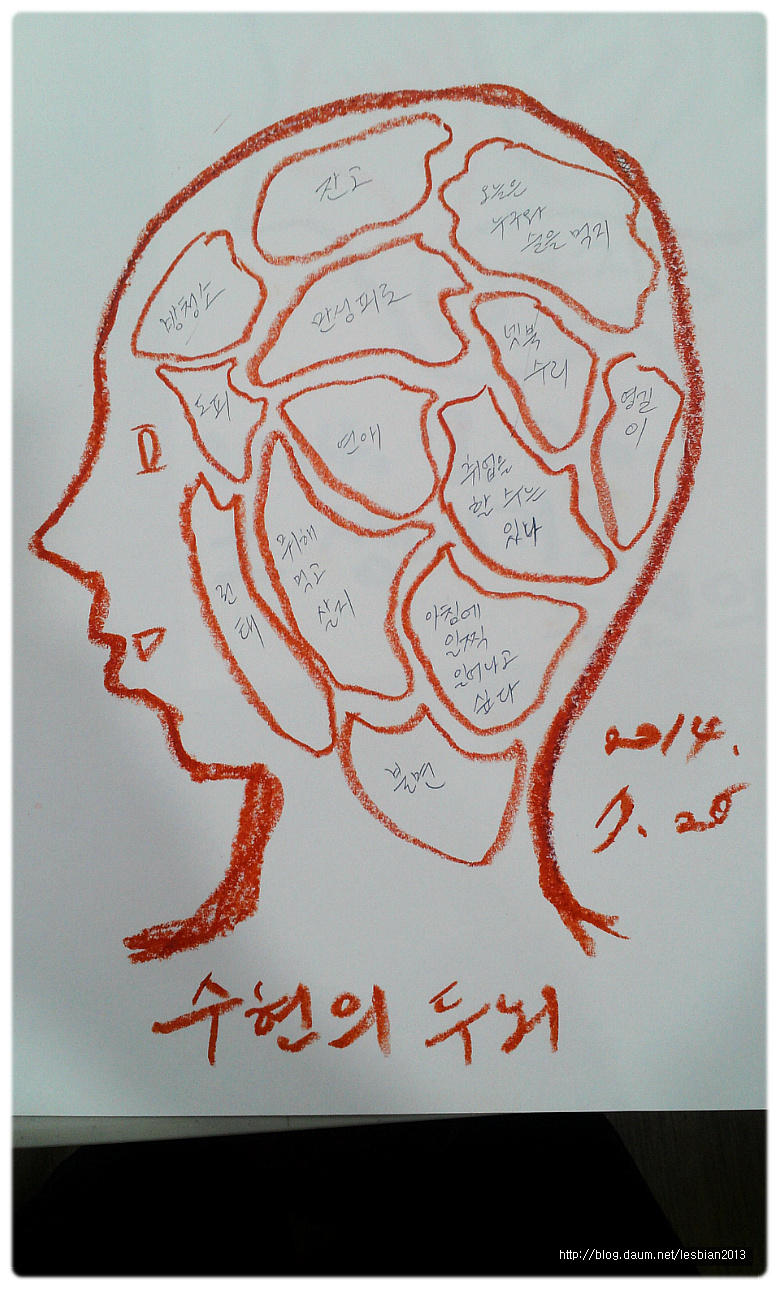 잔고
오늘은
누구와
술을 먹지
방청소
만성피로
넷북
수리
도피
연애
영길
이
취업을
할 수는
있나
뭐해
먹고
살지
권태
아침에
일찍
일어나고
싶다
불면
2014.
7. 28
수현의 두뇌
http://blog.daum.net/lesbian2013